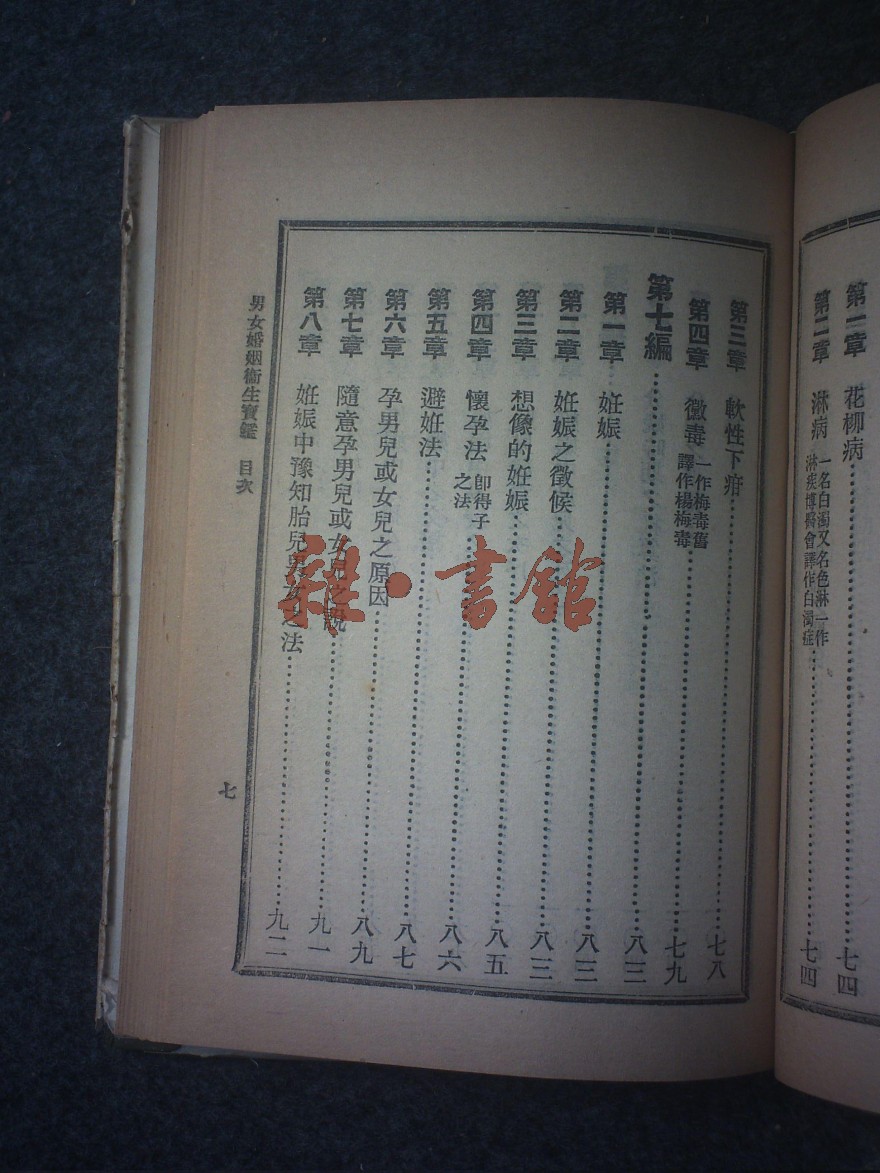 第一章 花柳病……七四
第二章 淋病 一名白濁又名色淋一作
淋疾博醫會譯作白濁症……七四
第三章 軟性下疳……七八
第四章 黴毒 一作梅毒舊
譯作楊梅毒……七九
第七編……八三
第一章 妊娠……八三
第二章 妊娠之徵候……八三
第三章 想像的妊娠……八五
第四章 懷孕法 卽得子
之法……八六
第五章 避妊法……八七
第六章 孕男兒或女兒之原因……八九
第七章 隨意孕男兒或女兒之說……九一
第八章 妊娠中豫知胎兒男女之法……九二
男女婚姻衞生寶鑑 目次
七
雜·書館